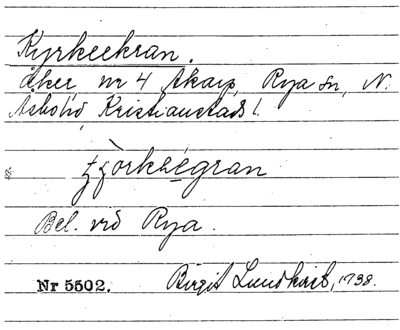 Kyrkeekran.
åker, nr 4 Åkarp, Rya sn, N.
Åsbo hd, Kristianstads l.
Bel. vid Rya.
Nr 5502. Birgit Lundkvist, 1938.